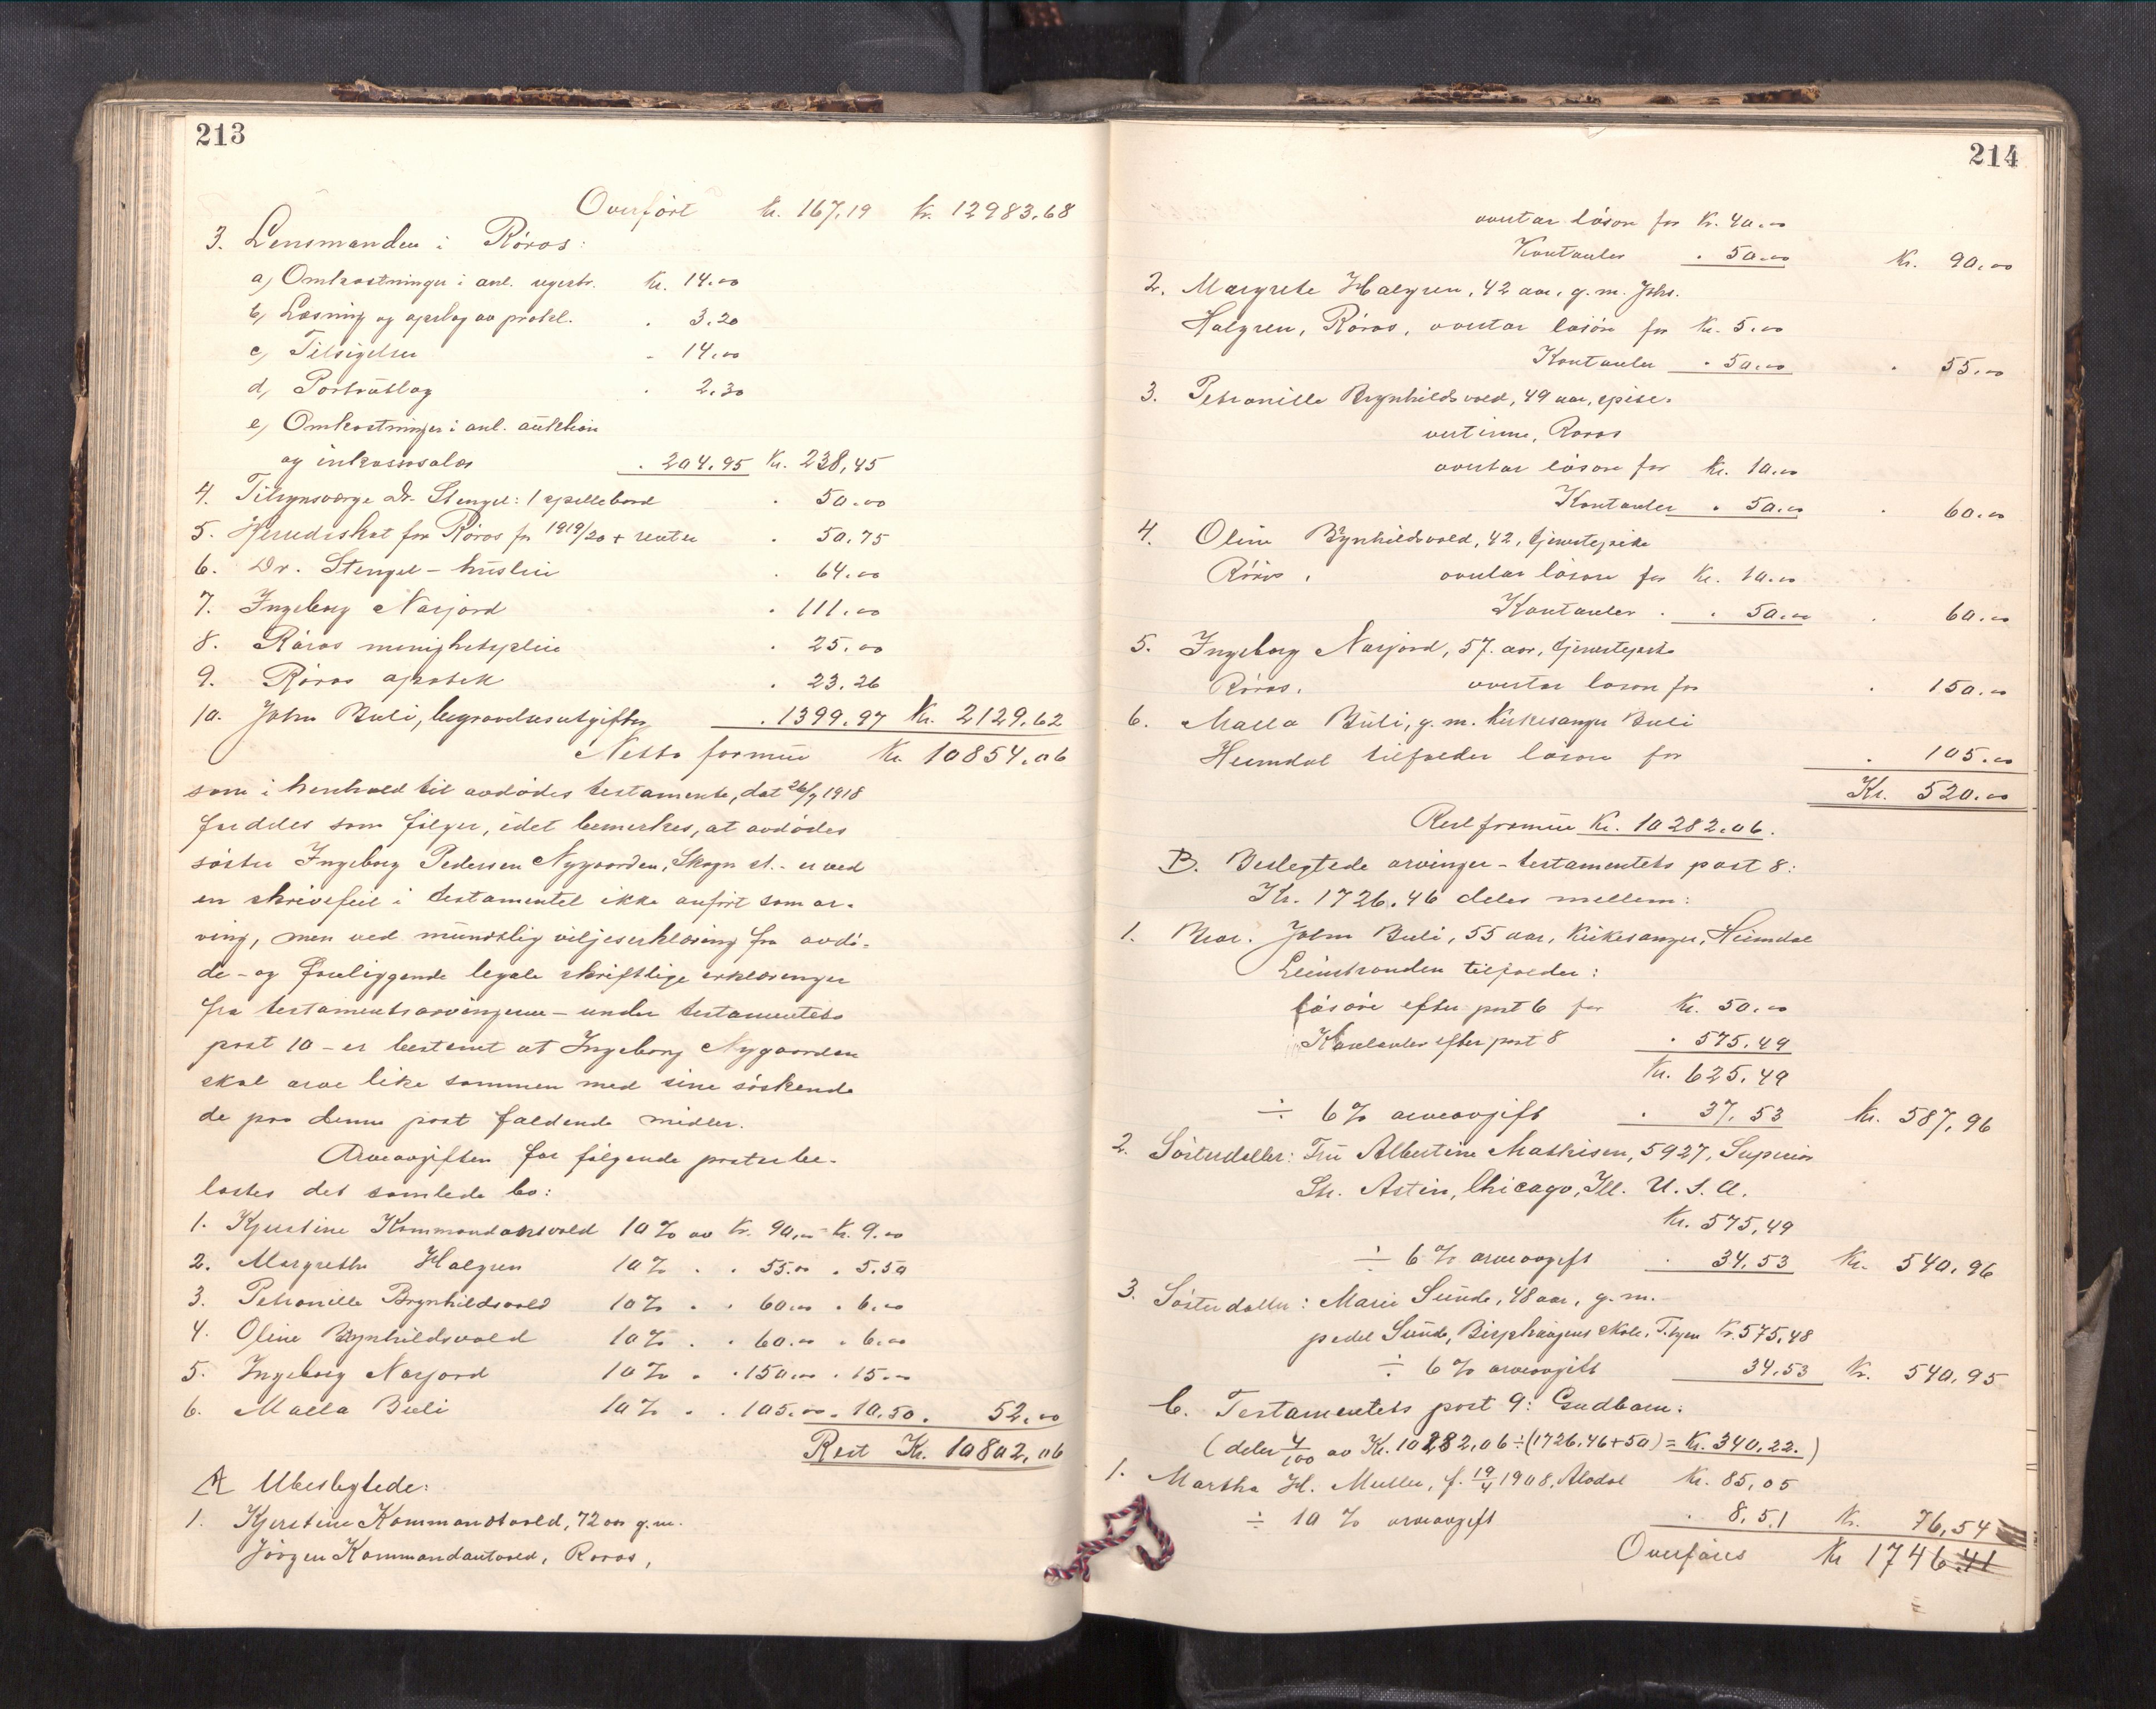 213
Overført Kr. 167,19 Kr. 12983,68
3. Lensmanden i Röros:
a) Omkostninger i anl. registr. Kr. 14.00
b) Læsning og opslag av prokl. . 3.20
c) Tilsigelser - 14.00
d) Portoutlæg . 2.30
e) Omkostninger i anl. auktion
og inkassosalær . 204.95 Kr. 238,45
4. Tilsynsværge Dr. Stengel: 1 spillebord . 50.00
5. Herredskat for Röros for 1919/20 + renter . 50.75
6. Dr. Stengel - husleie . 64.00
7. Ingeborg Narjord . 111.00
8. Röros menighetspleie . 25.00
9. Röros apotek . 23.26
10. John Buli, begravelsesutgifter . 1399.97 Kr. 2129.62
Netto formue Kr. 10854.06
som i henhold til avdödes testamente, dat 26/7 1918
fordeles som fölger, idet bemerkes, at avdödes
söster Ingeborg Pedersen Nygaarden, Skogn st. - er ved
en skrivefeil i testamentet ikke anfört som ar-
ving, men ved mundtlig viljeserklæring fra avdö-
de - og foreliggende legale skriftlige erklæringer
fra testamentsarvingerne - under testamentets
post 10 - er bestemt at Ingeborg Nygaarden
skal arve like sammen med sine söskende
de paa denne post faldende midler.
Arveavgiften for fölgende poster be-
lastes det samlede bo:
1. Kjerstine Kommandantvold 10% av Kr. 90,00 = Kr. 9.00
2. Margrethe Halgren 10% . . 55.00 . 5.50
3. Petronille Brynhildsvold 10% . . 60.00 . 6.00
4. Oline Brynhildsvold 10% . . 60.00 . 6.00
5. Ingeborg Narjord 10% . . 150.00 . 15.00
6. Maella Buli 10% . . 105.00 . 10.50 . 52.00
Rest Kr. 10802,06
A Ubeslegtede:
1. Kjerstine Kommandantvold, 72 aar g.m.
Jörgen Kommandantvold, Roros,
214
overtar lösöre for Kr. 40.00
Kontanter . 50.00 Kr. 90.00
2. Margrete Halgren, 42 aar, g.m. Johs.
Halgren, Röros, overtar lösöre for Kr. 5.00
Kontanter . 50.00 . 55.00
3. Petronille Brynhildsvold, 49 aar, spise-
vertinne, Roros
overtar lösöre for Kr. 10.00
Kontanter . 50.00 . 60.00
4. Oline Brynhildsvold, 42, tjenestepike
Röros, overtar lösöre for Kr. 10.00
Kontanter . . 50.00 . 60.00
5. Ingeborg Narjord, 57 aar, tjenestepike
Röros. overtar lösöre for . 150.00
6. Maella Buli, g.m. Kirkesanger Buli
Heimdal tilfalder lösöre for . 105.00
Kr. 520.00
Restformue Kr. 10282.06.
B. Beslegtede arvinger - testamentets post 8:
Kr. 1726.46 deles mellem:
1. Bror. John Buli, 55 aar, Kirkesanger, Heimdal
Leinstranden tilfalder:
lösöre efter post 6 for Kr. 50.00
Kontanter efter post 8 . 575.49
Kr. 625.49
÷ 6% arveavgift . 37.53 Kr. 587,96
2. Sösterdatter: Fru Albertine Mathisen, 5927, Superior
Str. Astin, Chicago, Ill. U.S.A.
Kr. 575,49
÷ 6% arveavgift . 34,53 Kr. 540,96
3. Sösterdatter: Marie Sunde, 48 aar, g.m.
pedel Sunde, Bispehaugens skole, T.hjem Kr. 575,48
÷ 6% arveavgift 34,53 Kr. 540,95
C. Testamentets post 9: Gudbarn.
(deler 4/100 av Kr. 10282,06÷(1726.46+50) = Kr. 340,22.)
1. Martha H. Muller, f. 19/4 1908, Alvdal Kr. 85,05
÷ 10% arveavgift . 8,51 Kr. 76,54
Overföres Kr 1746.41